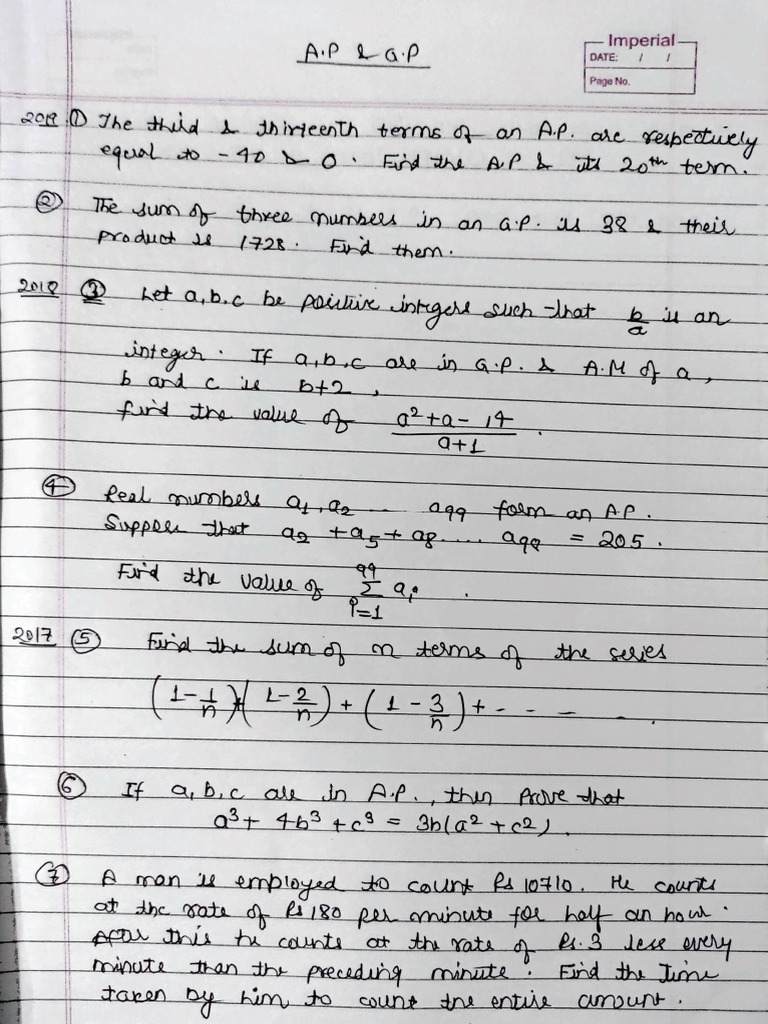 A.P & G.P
Imperial
DATE: / /
Page No.
2019 ① The third & thirteenth terms of an A.P. are respectively
equal to -40 & 0. Find the A.P & its 20th term.
② The sum of three numbers in an G.P. is 38 & their
product is 1728. Find them.
2018 ③ Let a,b,c be positive integers such that b/a is an
integer. If a,b,c are in G.P. & A.M of a,
b and c is b+2,
find the value of a²+a-14/a+1.
④ Real numbers a₁,a₂ ... a99 form an A.P.
Suppose that a₂ +a₅+a₈.... a98 = 205.
Find the value of 99 Σ i=1 aᵢ.
2017 ⑤ Find the sum of n terms of the series
(1-1/n)+(1-2/n)+(1-3/n)+- - - - .
⑥ If a,b,c are in A.P., then prove that
a³+ 4b³+c³ = 3b(a²+c²).
⑦ A man is employed to count Rs 10710. He counts
at the rate of Rs 180 per minute for half an hour.
After this he counts at the rate of Rs. 3 less every
minute than the preceding minute. Find the Time
taken by him to count the entire amount.